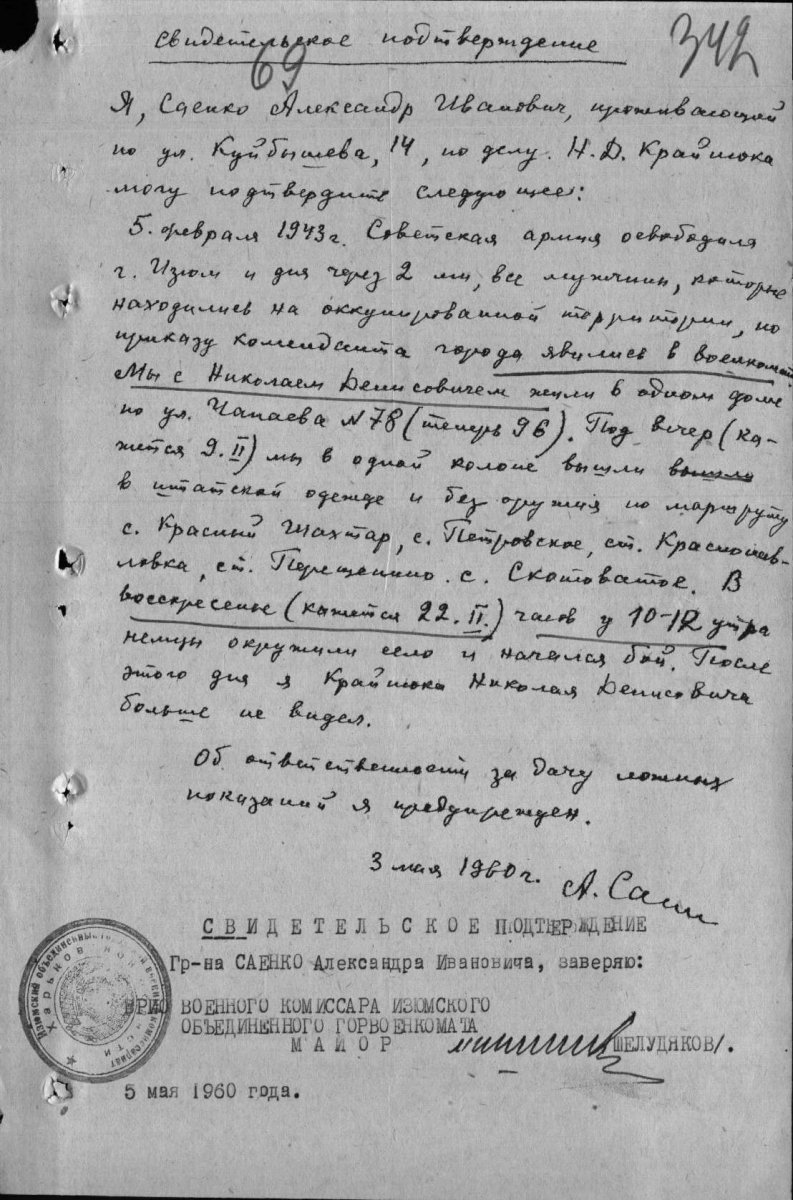 342
69
свидетельское подтверждение
Я, Саенко Александр Иванович, проживающий
по ул. Куйбышева, 14, по делу Н.Д. Крайнюка
могу подтвердить следующее:
5. февраля 1943 г. Советская армия освободила
г. Изюм и дня через 2 мы, все мужчины, которые
находились на оккупированной территории, по
приказу коменданта города явились в военкомат.
Мы с Николаем Денисовичем жили в одном доме
по ул. Чапаева N 78 (теперь 96). Под вечер (ка-
жется 9.II) мы в одной колоне вышли вышли
в штатской одежде и без оружия по маршруту
с. Красный Шахтар, с. Петровское, ст. Краснопав-
ловка, ст. Перещепино. с. Скотоватое. В
восскресенье (кажется 22.II.) часов у 10-12 утра
немцы окружили село и начался бой. После
этого дня я Крайнюка Николая Денисовича
больше не видел.
Об ответственности за дачу ложных
показаний я предупрежден.
3 мая 1960 г.
А. Саен
СВИДЕТЕЛЬСКОЕ ПОДТВЕРЖДЕНИЕ
Гр-на САЕНКО Александра Ивановича, заверяю:
ВРИО ВОЕННОГО КОМИССАРА ИЗЮМСКОГО
ОБЪЕДИНЕННОГО ГОРВОЕНКОМАТА
МАЙОР
ШЕЛУДЯКОВ/.
5 мая 1960 года.
Изюмский объединенный военный комиссариат
Харьковской области